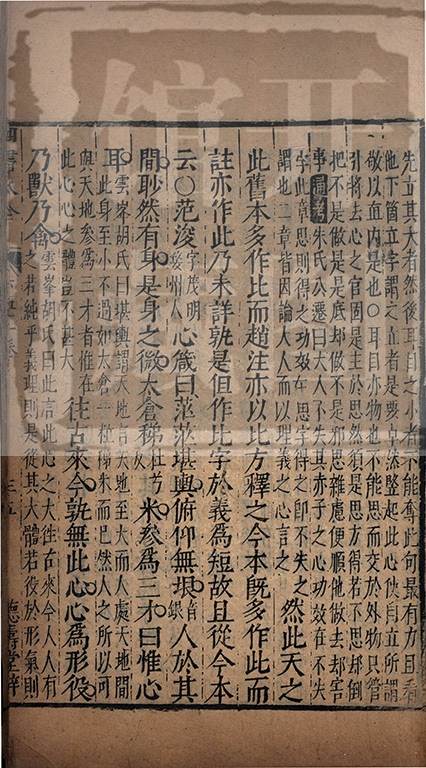 先立其大者然後耳目之小者不能奪此句最有力且看
他下箇立字謂之立者是要卓然竪起此心使自立所謂
敬以直内是也〇耳目亦物也不能思而交於外物只管
引將去心之官固是主於思然須是思方得若不思却倒
把不是做是是底却做不是邪思雜慮便順他做去却害
事通考朱氏公遷曰大人不失其赤子之心功效在不失
字此章思則得之功效在思字得之即不失之
謂也二章皆因論大人而以理義之心言之
然此天之
此舊本多作比而趙注亦以比方釋之今本旣多作此而
註亦作此乃未詳孰是但作比字於義爲短故且從今本
云〇范浚字茂明婺州人心箴曰茫茫堪輿俯仰無垠音銀人於其
間眇然有身是身之微太倉稊杜兮反米參爲三才曰惟心
耳雲峯胡氏曰堪輿謂天地言天地至大而人處天地間
此身至小不過如太倉一粒稊米而已然人之所以可
與天地參爲三才者惟在
此心心之體豈不甚大
往古來今孰無此心心爲形役
乃獸乃禽雲峯胡氏曰此言此心之大往古來今人人有
之若純乎義理則是從其大體若役於形氣則